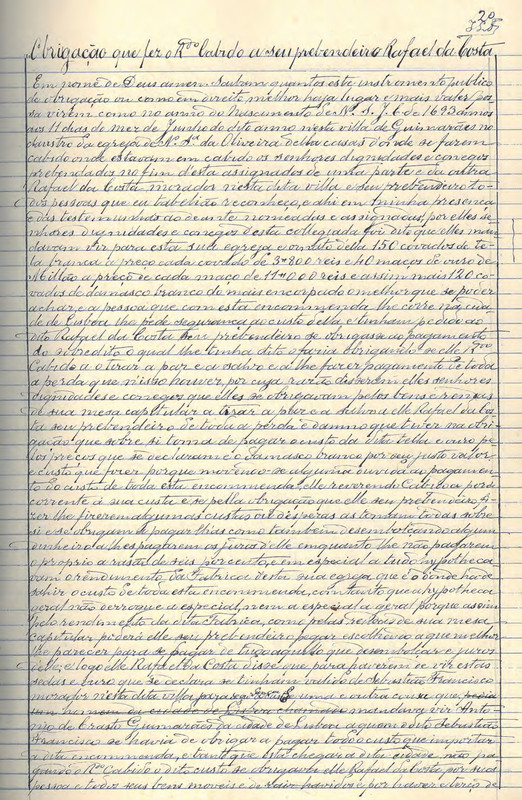 20
Obrigação que fez o R.do Cabido a seu prebendeiro Rafael da Costa
Em nome de Deus amen. Saibam quantos este instromento publico
de obrigação ou como em direito melhor haja lugar e mais valer pos
sa virem como no anno do Nascimento de N. S. J. C. de 1693 annos
aos 11 dias do mez de Junho do dito anno nesta villa de Guimarães no
claustro da egreja de N.ª S.ª da Oliveira della casas donde se fazem
cabido onde estavam em cabido os senhores dignidades e conegos
prebendados no fim desta assignados de uma parte e da outra
Rafael da Costa morador nesta dita villa e seu prebendeiro to-
dos pessoas que eu tabellião reconheço, e ahi em minha presença
e das testemunhas ao deante nomeadas e assignadas, por elles se-
nhores dignidades e conegos desta collegiada foi dito que elles man
davam vir para esta sua egreja e ornato della 150 covados de te-
la branca a preço cada covado de 3800 reis e 40 maços de ouro de
Millão a preço de cada maço de 11000 reis e assim mais 120 co-
vados de damasco branco do mais encorpado e melhor que se poder
achar e a pessoa que com esta encommenda lhe corre na cida
de de Lisboa lhe pede segurança ao custo della e tinham pedido ao
dito Rafael da Costa seu prebendeiro se obrigasse ao pagamento
do sobredito o qual lhe tinha dito o faria obrigando-se elle R.do
Cabido a tirar a paz e a salvo e a lhe fazer pagamento de toda
a perda que nisso houver, por cuja razão disseram elles senhores
dignidades e conegos que elles se obrigavam pelos bens e rendas
de sua mesa capitular a tirar a paz e a salvo a elle Rafael da Cos
ta seu prebendeiro de toda a perda e damno que tiver na obri-
gação que sobre si toma de pagar o custo da dita tella e ouro pe-
los preços que se declaram e o damasco branco por seu justo valor
e custo que fizer porque movendo-se alguma duvida ao pagamen-
to do custo de toda esta encommenda elle reverendo Cabido a porá
corrente á sua custa e se pella obrigação que elle seu prebendeiro fi-
zer lhe fizerem algumas custas ou despezas as tomam todas sobre
si e se obrigam a pagar-lhas como tambem desembolçando algum
dinheiro a lhes pagarem os juros delle emquanto lhe não pagarem
o proprio a rasão de seis por cento, e em especial a tudo hypotheca
vam o rendimento da Fabrica desta sua egreja que é o donde ha de
sahir o custo de toda esta encommenda, comtanto que a hypotheca
geral não derrogue a especial, nem a especial a geral porque assim
pelo rendimento da dita Fabrica, como pelas rendas de sua mesa
capitular poderá elle seu prebendeiro pagar escolhendo a que melhor
lhe parecer para se pagar de tudo aquillo que desembolçar e juros
delle; e logo elle Rafael da Costa disse que para haverem de vir estas
sedas e ouro que se declara se tinham valido de Sebastião Francisco
morador nesta dita villa para uma e outra cousa que
mandava vir Anto-
nio de Crasto Guimarães da cidade de Lisboa a quem o dito Sebastião
Francisco se havia de obrigar a pagar todo o custo que importar
a dita encommenda, e tanto que esta chegar a dita cidade não pa-
gando o R.do Cabido o dito custo se obrigava elle Rafael da Costa por sua
pessoa e todos seus bens moveis e de raiz havidos e por haver e terço de